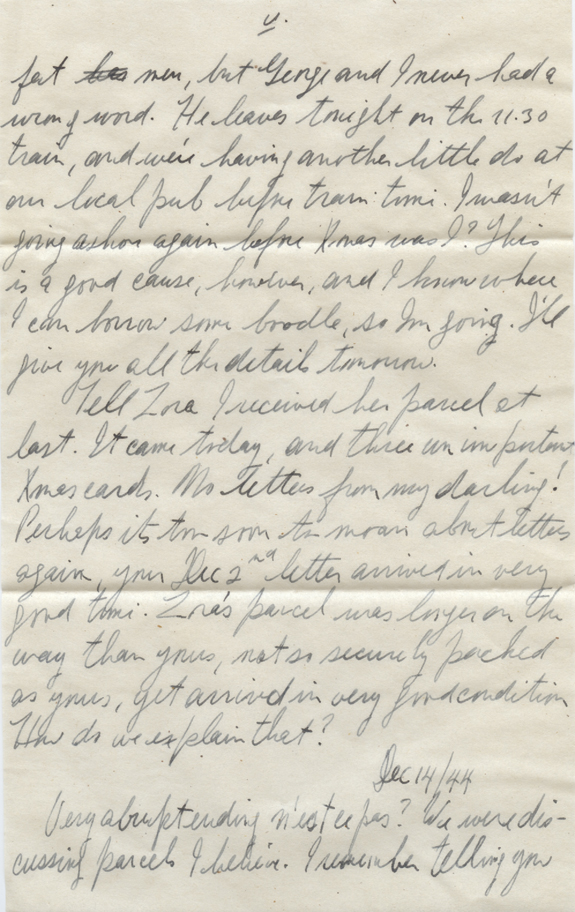 4.
fect men, but George and I never had a
wrong word. He leaves tonight on the 11.30
train, and we're having another little do at
our local pub before train time. I wasn't
going ashore again before Xmas was I? This
is a good cause, however, and I know where
I can borrow some boodle, so I'm going. I'll
give you all the details tomorrow.
Tell Zora I received her parcel at
last. It came today, and three unimportant
Xmas cards. No letters from my darling!
Perhaps its too soon to moan about letters
again, your Dec 2nd letter arrived in very
good time. Zora's parcel was longer on the
way than yours, not so securely packed
as yours, yet arrived in very good condition
How do we explain that?
Dec 14/44
Very abrupt ending n'est ce pas? We were dis-
cussing parcels I believe. I remember telling you